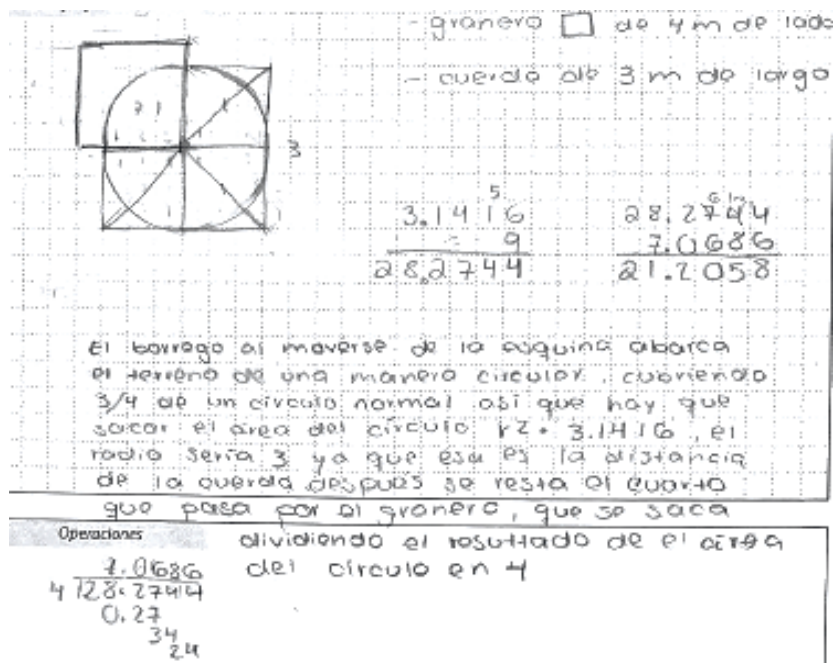 - granero □ de 4 m de lado
- cuerda de 3 m de largo
3
3.1416
9
28.2744
28.2744
7.0686
21.2058
El borrego al moverse de la esquina abarca
el terreno de una manera circular, cubriendo
3/4 de un circulo normal asi que hay que
sacar el área del circulo r2 • 3.1416, el
radio seria 3 ya que esa es la distancia
de la cuerda despues se resta el cuarto
que pasa por el granero, que se saca
Operaciones
dividiendo el resultado de el área
del circulo en 4
7.0686
4 28.2744
0.27
34
24